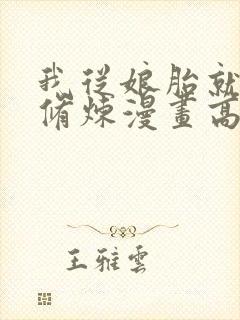 我從娘胎就
脩煉漫畫高
王雅雲